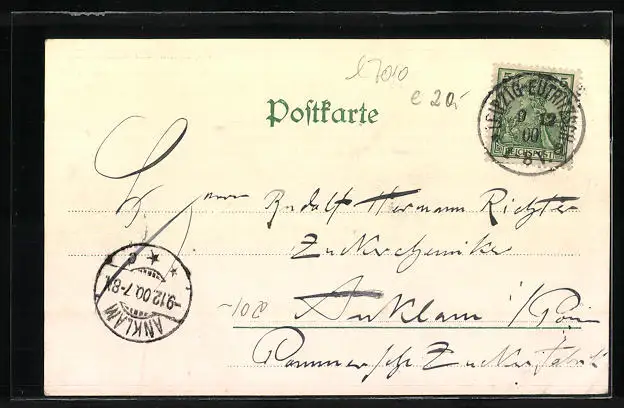 L7010
e 20,-
Postkarte
5 5
REICHSPOST
LEIPZIG-EUTRITZSCH
9 12
00
8
Herrn Rudolf Hermann Richter
Zuckerchemiker
Anklam i/Pom
Pommersche Zuckerfabrik
ANKLAM
9.12.00.7-8
~108